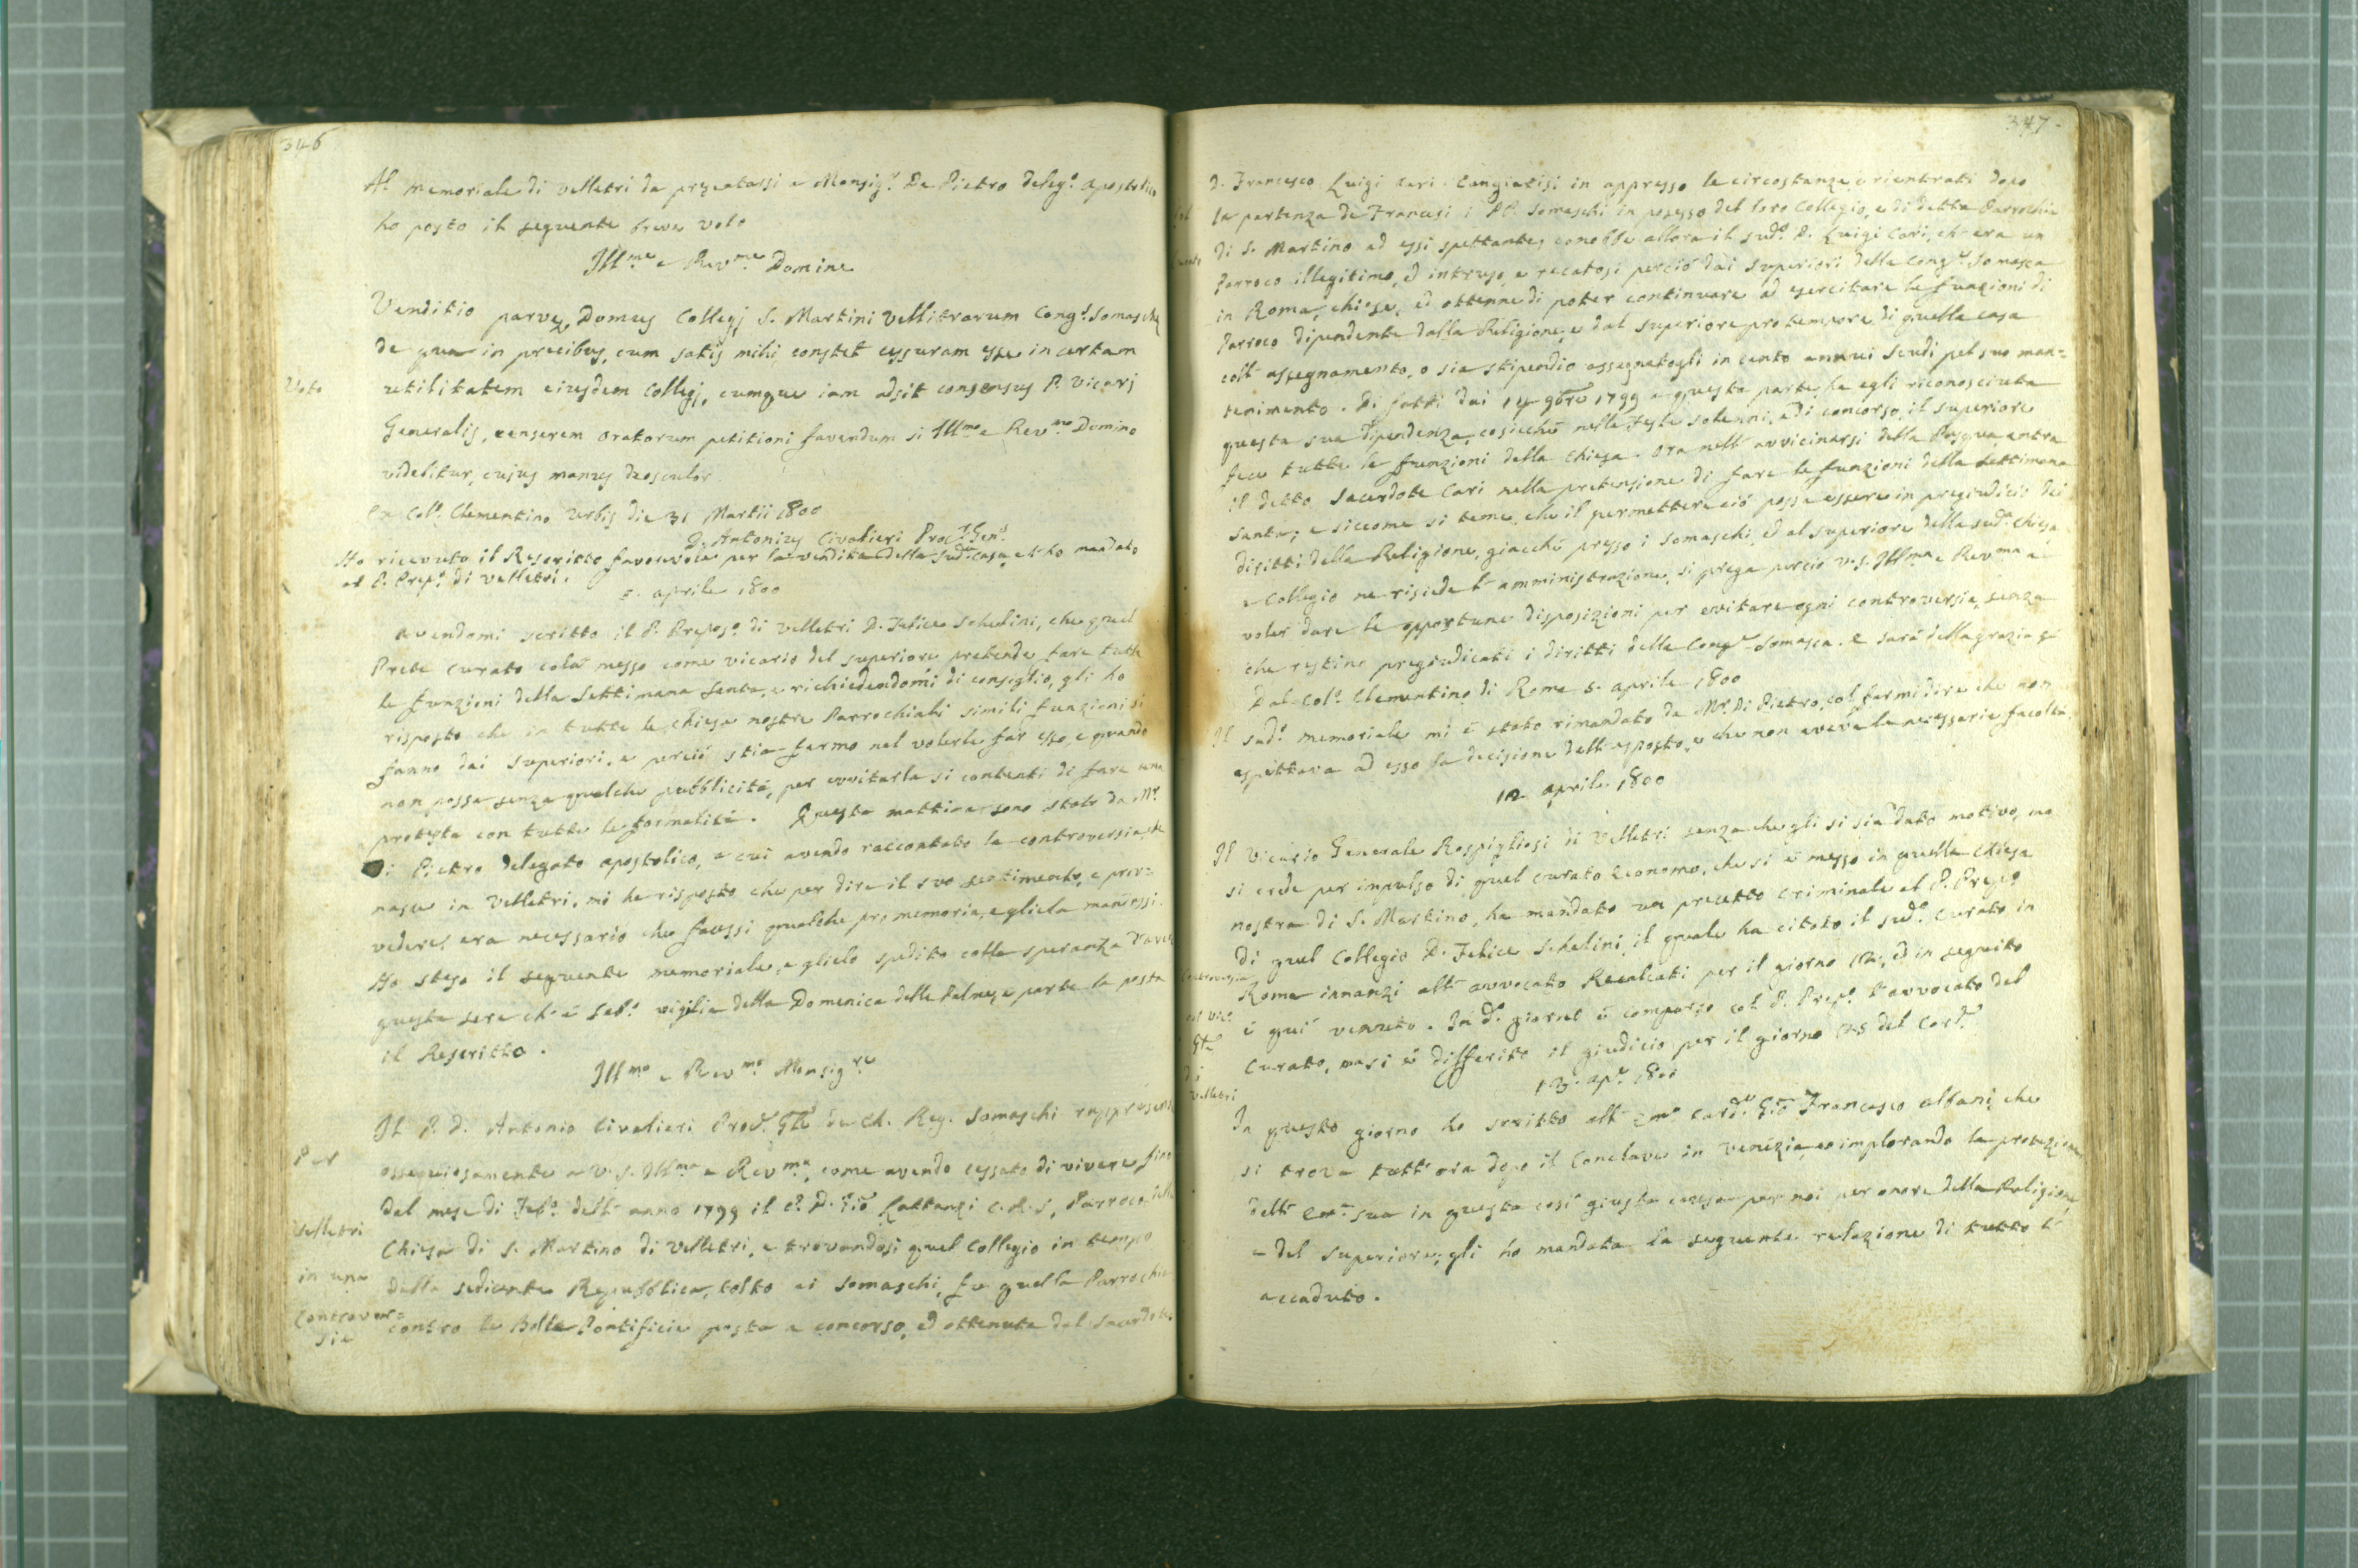 346
Al memoriale di Velletri da presentarsi a Monsig.r De Pietro deleg.o apostolico
ho posto il seguente breve voto
Ill.me e Rev.me Domine
Venditio parvę Domus Collegj S. Martini Vellitrarum Cong.s Somaschę
de qua in precibus, cum satis mihi constet cessuram esse in certam
Voto
utilitatem eiusdem Collegj, cumque iam adsit consensus P. Vicarj
Generalis, censerem Oratorum petitioni favendum si Ill.mo e Rev.mo Domino
videbitur, cujus manus deosculor
Ex Col.o Clementino Urbis die 31 Martii 1800
D. Antonius Civalieri Proc.r Gen.s
Ho ricevuto il Rescritto favorevole per la vendita della sud.a casa, e l'ho mandato
al P. Prep.o di Velletri.
5. aprile 1800
Avendomi scritto il P. Prepos.o di Velletri D. Felice Schelini, che quel
Prete curato colà messo come vicario del superiore pretende fare tutte
le funzioni della Settimana Santa, e richiedendomi di consiglio, gli ho
risposto che in tutte le chiese nostre Parrochiali simili funzioni si
fanno dai superiori, e perciò stia fermo nel volerle far esso, e quando
non possa senza qualche pubblicità, per evvitarla si contenti di fare una
protesta con tutte le formalità. Questa mattina sono stato da M.r
Di Pietro delegato apostolico, a cui avendo raccontato la controversia, che
nasce in Velletri, mi ha risposto che per dire il suo sentimento, e prov=
vedere, era necessario che facessi qualche pro memoria, e gliela mandassi.
Ho steso il seguente memoriale, e glielo spedito colla speranza d'aver
questa sera ch'è Sab.o vigilia della Domenica delle Palme, e parte la posta
il Rescritto.
Ill.mo e Rev.mo Monsig.re
Il P. D. Antonio Civalieri Proc.r Gñle de Ch. Reg. Somaschi rappresenta
Per
ossequiosamente a V. S. Ill.ma e Rev.ma, come avendo cessato di vivere fino
dal mese di Feb.o dell'anno 1799 il P. D. Gio Lattanzi C. R. S, Parroco della
Velletri
Chiesa di S. Martino di Velletri, e trovandosi quel Collegio in tempo
in una
della sedicente Repubblica, tolto ai Somaschi, fu quella Parrochia
Controver=
sia
contro le Bolle Pontificie posta a concorso, ed ottenuta dal Sacerdote
347.
D. Francesco Luigi Cari. Cangiatisi in appresso le circostanze, e rientrati dopo
la partenza de Francesi i PP. Somaschi in possesso del loro Collegio, e di detta Parrochia
di S. Martino ad essi spettante, conobbe allora il sud.o D. Luigi Cari, ch'era un
Parroco illegitimo, ed intruso, e recatosi perciò dai superiori della Cong.e Somasca
in Roma, chiese, ed ottenne di poter continuare ad esercitare le funzioni di
Parroco dipendente dalla Religione, e dal superiore pro tempore di quella casa
coll'assegnamento, o sia stipendio assegnatogli in cento annui scudi pel suo man=
tenimento. Di fatti dai 14 9bre 1799 a questa parte, ha egli riconosciuta
questa sua dipendenza, cosicchè nelle Feste solenni, e di concorso, il superiore
fece tutte le funzioni della Chiesa. Ora nell'avvicinarsi della Pasqua, entra
il detto Sacerdote Cari nella pretensione di fare le funzioni della Settimana
Santa; e siccome si teme, che il permettere ciò possa essere in pregiudicio dei
diritti della Religione, giacchè presso i Somaschi, ed al superiore della sud.a Chiesa
e Collegio ne risiede l'amministrazione, si prega perciò V. S. Ill.ma e Rev.ma a
voler dare le opportune disposizioni per evitare ogni controversia, senza
che restino pregiudicati i diritti della Cong.e Somasca. E sarà della grazia &
Dal Col.o Clementino di Roma 5. aprile 1800
Il sud.o memoriale mi è stato rimandato da M.r Di Pietro, col farmi dire che non
aspettava ad esso la decisione dell'esposto, e che non aveva le necessarie facoltà.
12 aprile 1800
Il Vicario Generale Rospigliosi di Velletri senza che gli si sia dato motivo, ma
si crede per impulso di quel curato economo, che si è messo in quella chiesa
nostra di S. Martino, ha mandato un precetto criminale al P. Prep.o
di quel Collegio D. Felice Schelini, il quale ha citato il sud.o Curato in
Controversia
Roma innanzi all'avvocato Recalcati per il giorno 12, ed in seguito
col Vic.o
è qui venuto. In d.o giorno è comparso col P. Prep.o l'avvocato del
Gle
Curato, ma si è differito il giudicio per il giorno 25 del Corr.e
di
Velletri
13. ap.e 1800
In questo giorno ho scritto all'Em.o Card.e Gio Francesco Albani, che
si trova tutt'ora dopo il Conclave in Venezia, ed implorando la protezione
dell'Em.a sua in questa così giusta causa per noi per onore della Religione
e del superiore, gli ho mandata la seguente relazione di tutto l'
accaduto.